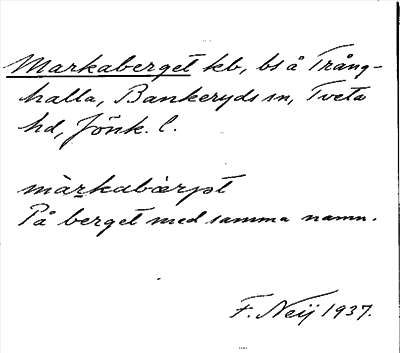 Markaberget kb, bs å Trång-
halla, Bankeryds sn, Tveta
hd, Jönk. l.
màrkabærjət
På berget med samma namn.
F. Neij 1937.